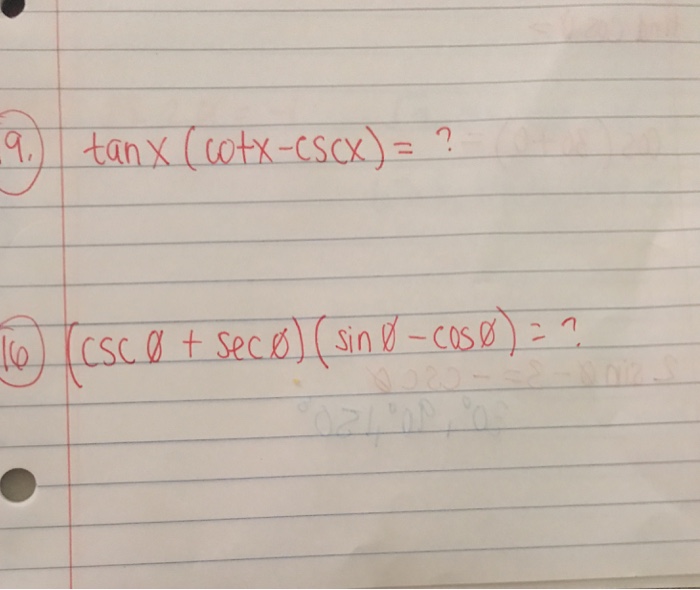 9. tanx (cotx-cscx) = ?
16 (cscØ + secØ) (sinØ - cosØ) = ?